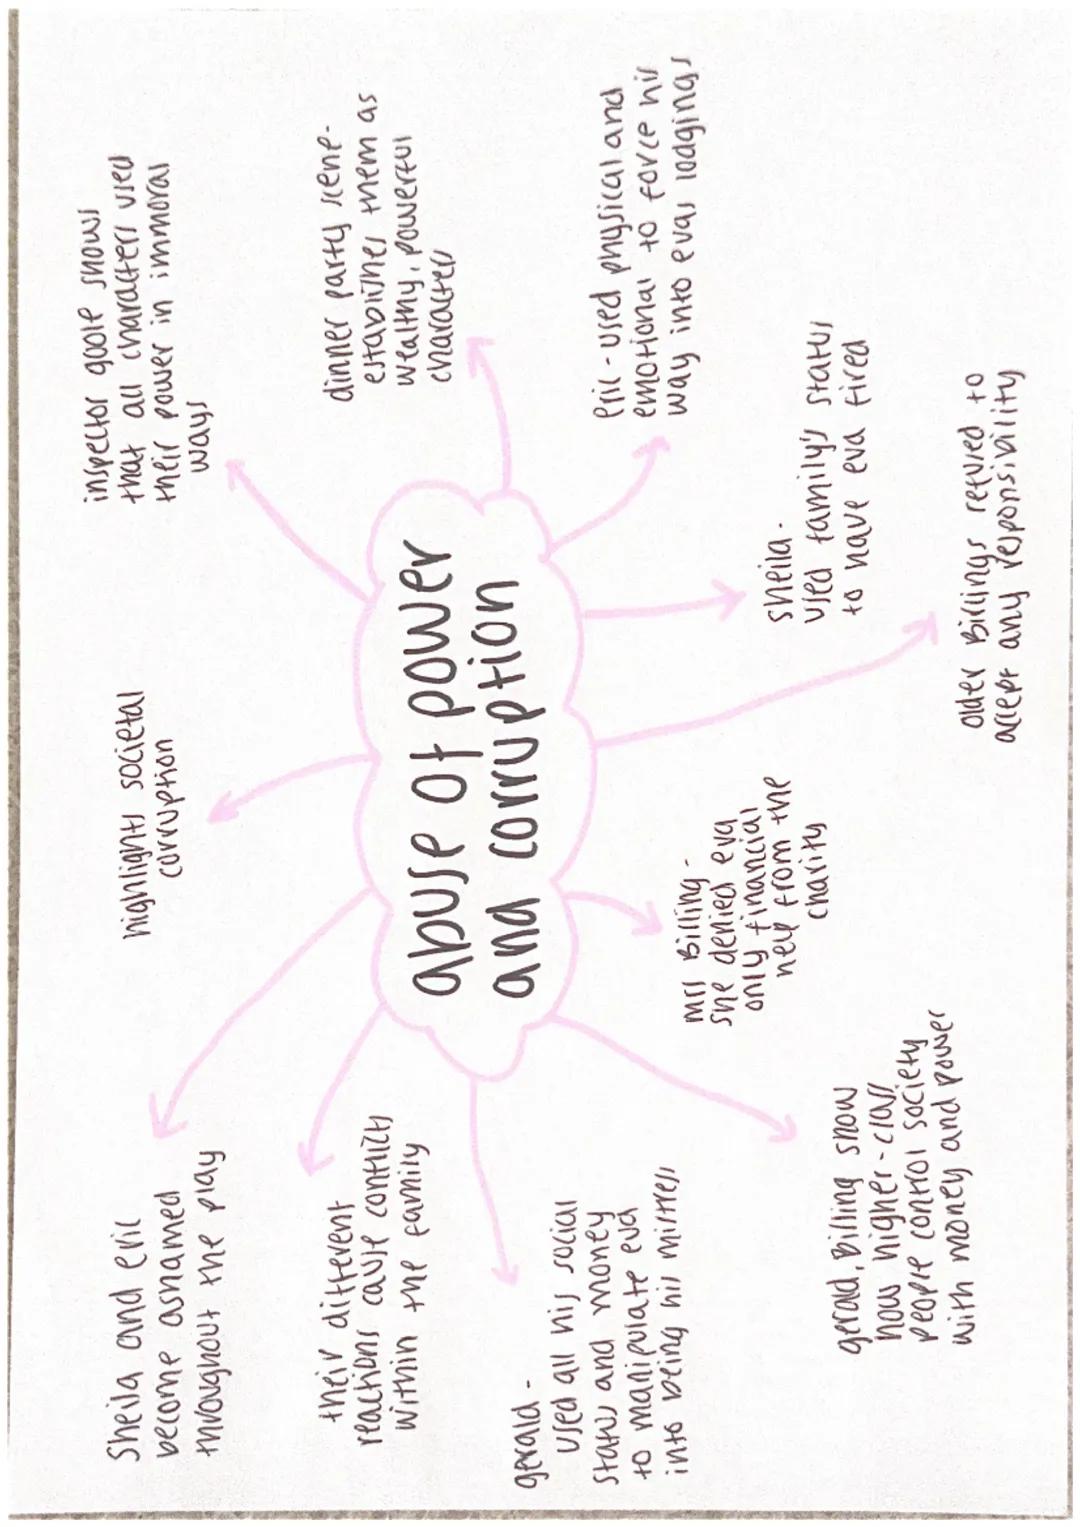 abuse of power
and corruption
Sheila and Eric
become ashamed
throughout the play
highlights societal
corruption
inspector goole shows
that all characters used
their power in immoral
ways
dinner party scene-
establishes them as
wealthy, powerful
characters
Eric - used physical and
emotional to force his
way into evas lodgings
Sheila -
used family's status
to have eva fired
older Birlings refused to
accept any responsibility
mrs Birling -
she denied eva
only financial
help from the
charity
gerald, Birling show
how higher-class
people control society
with money and power
gerald -
used all his social
status and money
to manipulate eva
into being his mistress
their different
reactions cause conflicts
within the family